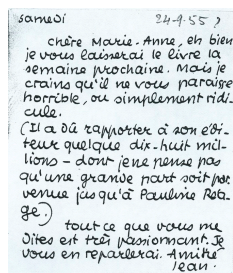 samedi 24-9-55 ?
chère Marie-Anne, eh bien
je vous laisserai le livre la
semaine prochaine. Mais je
crains qu'il ne vous paraisse
horrible, ou simplement ridi-
cule.
(Il a dû rapporter à son édi-
teur quelque dix-huit mil-
lions – dont je ne pense pas
qu'une grande part soit par-
venue jusqu'à Pauline Réa-
ge.)
tout ce que vous me
dites est très passionnant. Je
vous en reparlerai. Amitié
Jean.